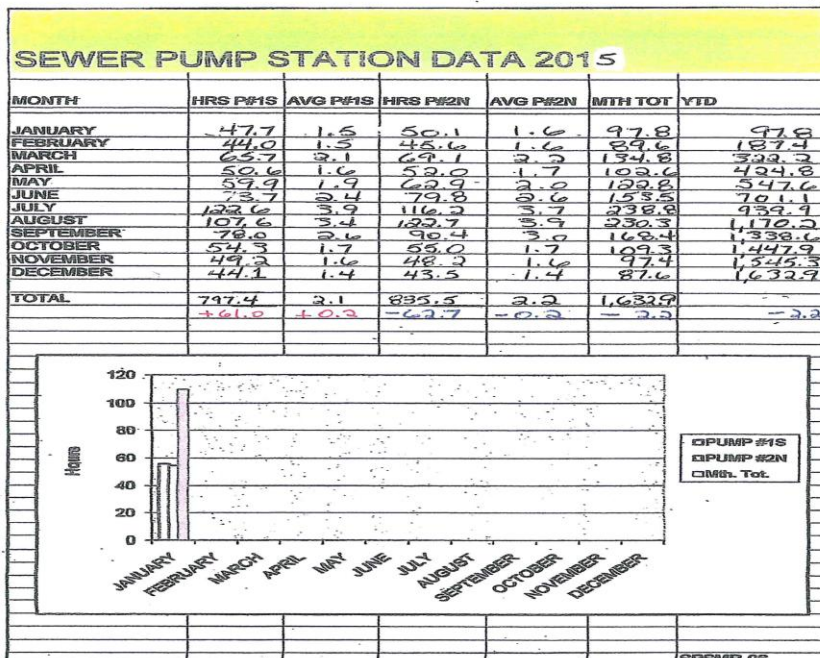 SEWER PUMP STATION DATA 2015
MONTH HRS P#1S AVG P#1S HRS P#2N AVG P#2N MTH TOT YTD
JANUARY 47.7 1.5 50.1 1.6 97.8 97.8
FEBRUARY 44.0 1.5 45.6 1.6 89.6 187.4
MARCH 65.7 2.1 69.1 2.2 134.8 322.2
APRIL 50.6 1.6 52.0 1.7 102.6 424.8
MAY 59.9 1.9 62.9 2.0 122.8 547.6
JUNE 73.7 2.4 79.8 2.6 153.5 701.1
JULY 122.6 3.9 116.2 3.7 238.8 939.9
AUGUST 107.6 3.4 122.7 3.9 230.3 1,170.2
SEPTEMBER 78.0 2.6 90.4 3.0 168.4 1,338.6
OCTOBER 54.3 1.7 55.0 1.7 109.3 1,447.9
NOVEMBER 49.2 1.6 48.2 1.6 97.4 1,545.3
DECEMBER 44.1 1.4 43.5 1.4 87.6 1,632.9
TOTAL 797.4 2.1 835.5 2.2 1,632.9
+61.0 +0.2 -62.7 -0.2 - 2.2 -2.2
120
100
80
60
40
20
0
Hours
JANUARY FEBRUARY MARCH APRIL MAY JUNE JULY AUGUST SEPTEMBER OCTOBER NOVEMBER DECEMBER
PUMP #1S
PUMP #2N
Mth. Tot.